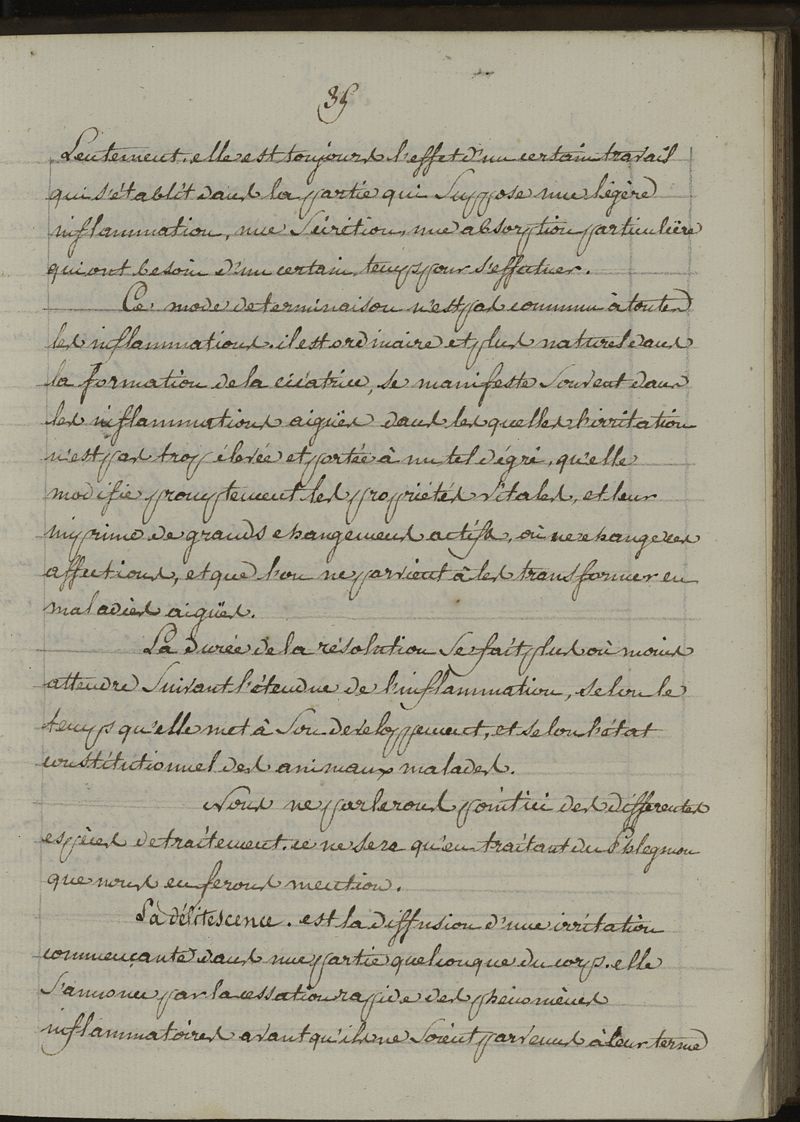 35
Lentement. elle est toujours l'effet d'un certain travail
qui s'établit dans la partie qui Suppose une légère
inflammation, une Sécrétion, une absorption particulière
qui ont besoin d'un certain temps pour s'effectuer.
Ce mode de terminaison n'est pas commun à toutes
les inflammations. il est ordinaire et plus naturel dans
la formation de la cicatrice, se manifeste Souvent dans
les inflammations aigües dans les quelles l'irritation
n'est pas trop élevée et portée à un tel dégré, qu'elle
modifie promptement les propriétés vitales, et leur
imprime de grands changemens actifs, où ne change ces
affections, et que l'on ne parvient à les transformer en
maladies aigües.
La durée de la résolution Se fait plus où moins
attendre Suivant l'étendue de l'inflammation, selon le
temps qu'elle met à Son developpement, et selon l'état
constitutionnel des animaux malades.
Nous ne parlerons point ici des differentes
espèces de traitement. ce ne sera qu'en traitant du Phlegmon
que nous en ferons mention.
La délitescence. est la diffusion d'une irritation
commençante dans une partie quelconque du corps. elle
S'annonce par la cessation rapide des phénomènes
inflammatoires avant qu'ils ne Soient parvenus à leur terme